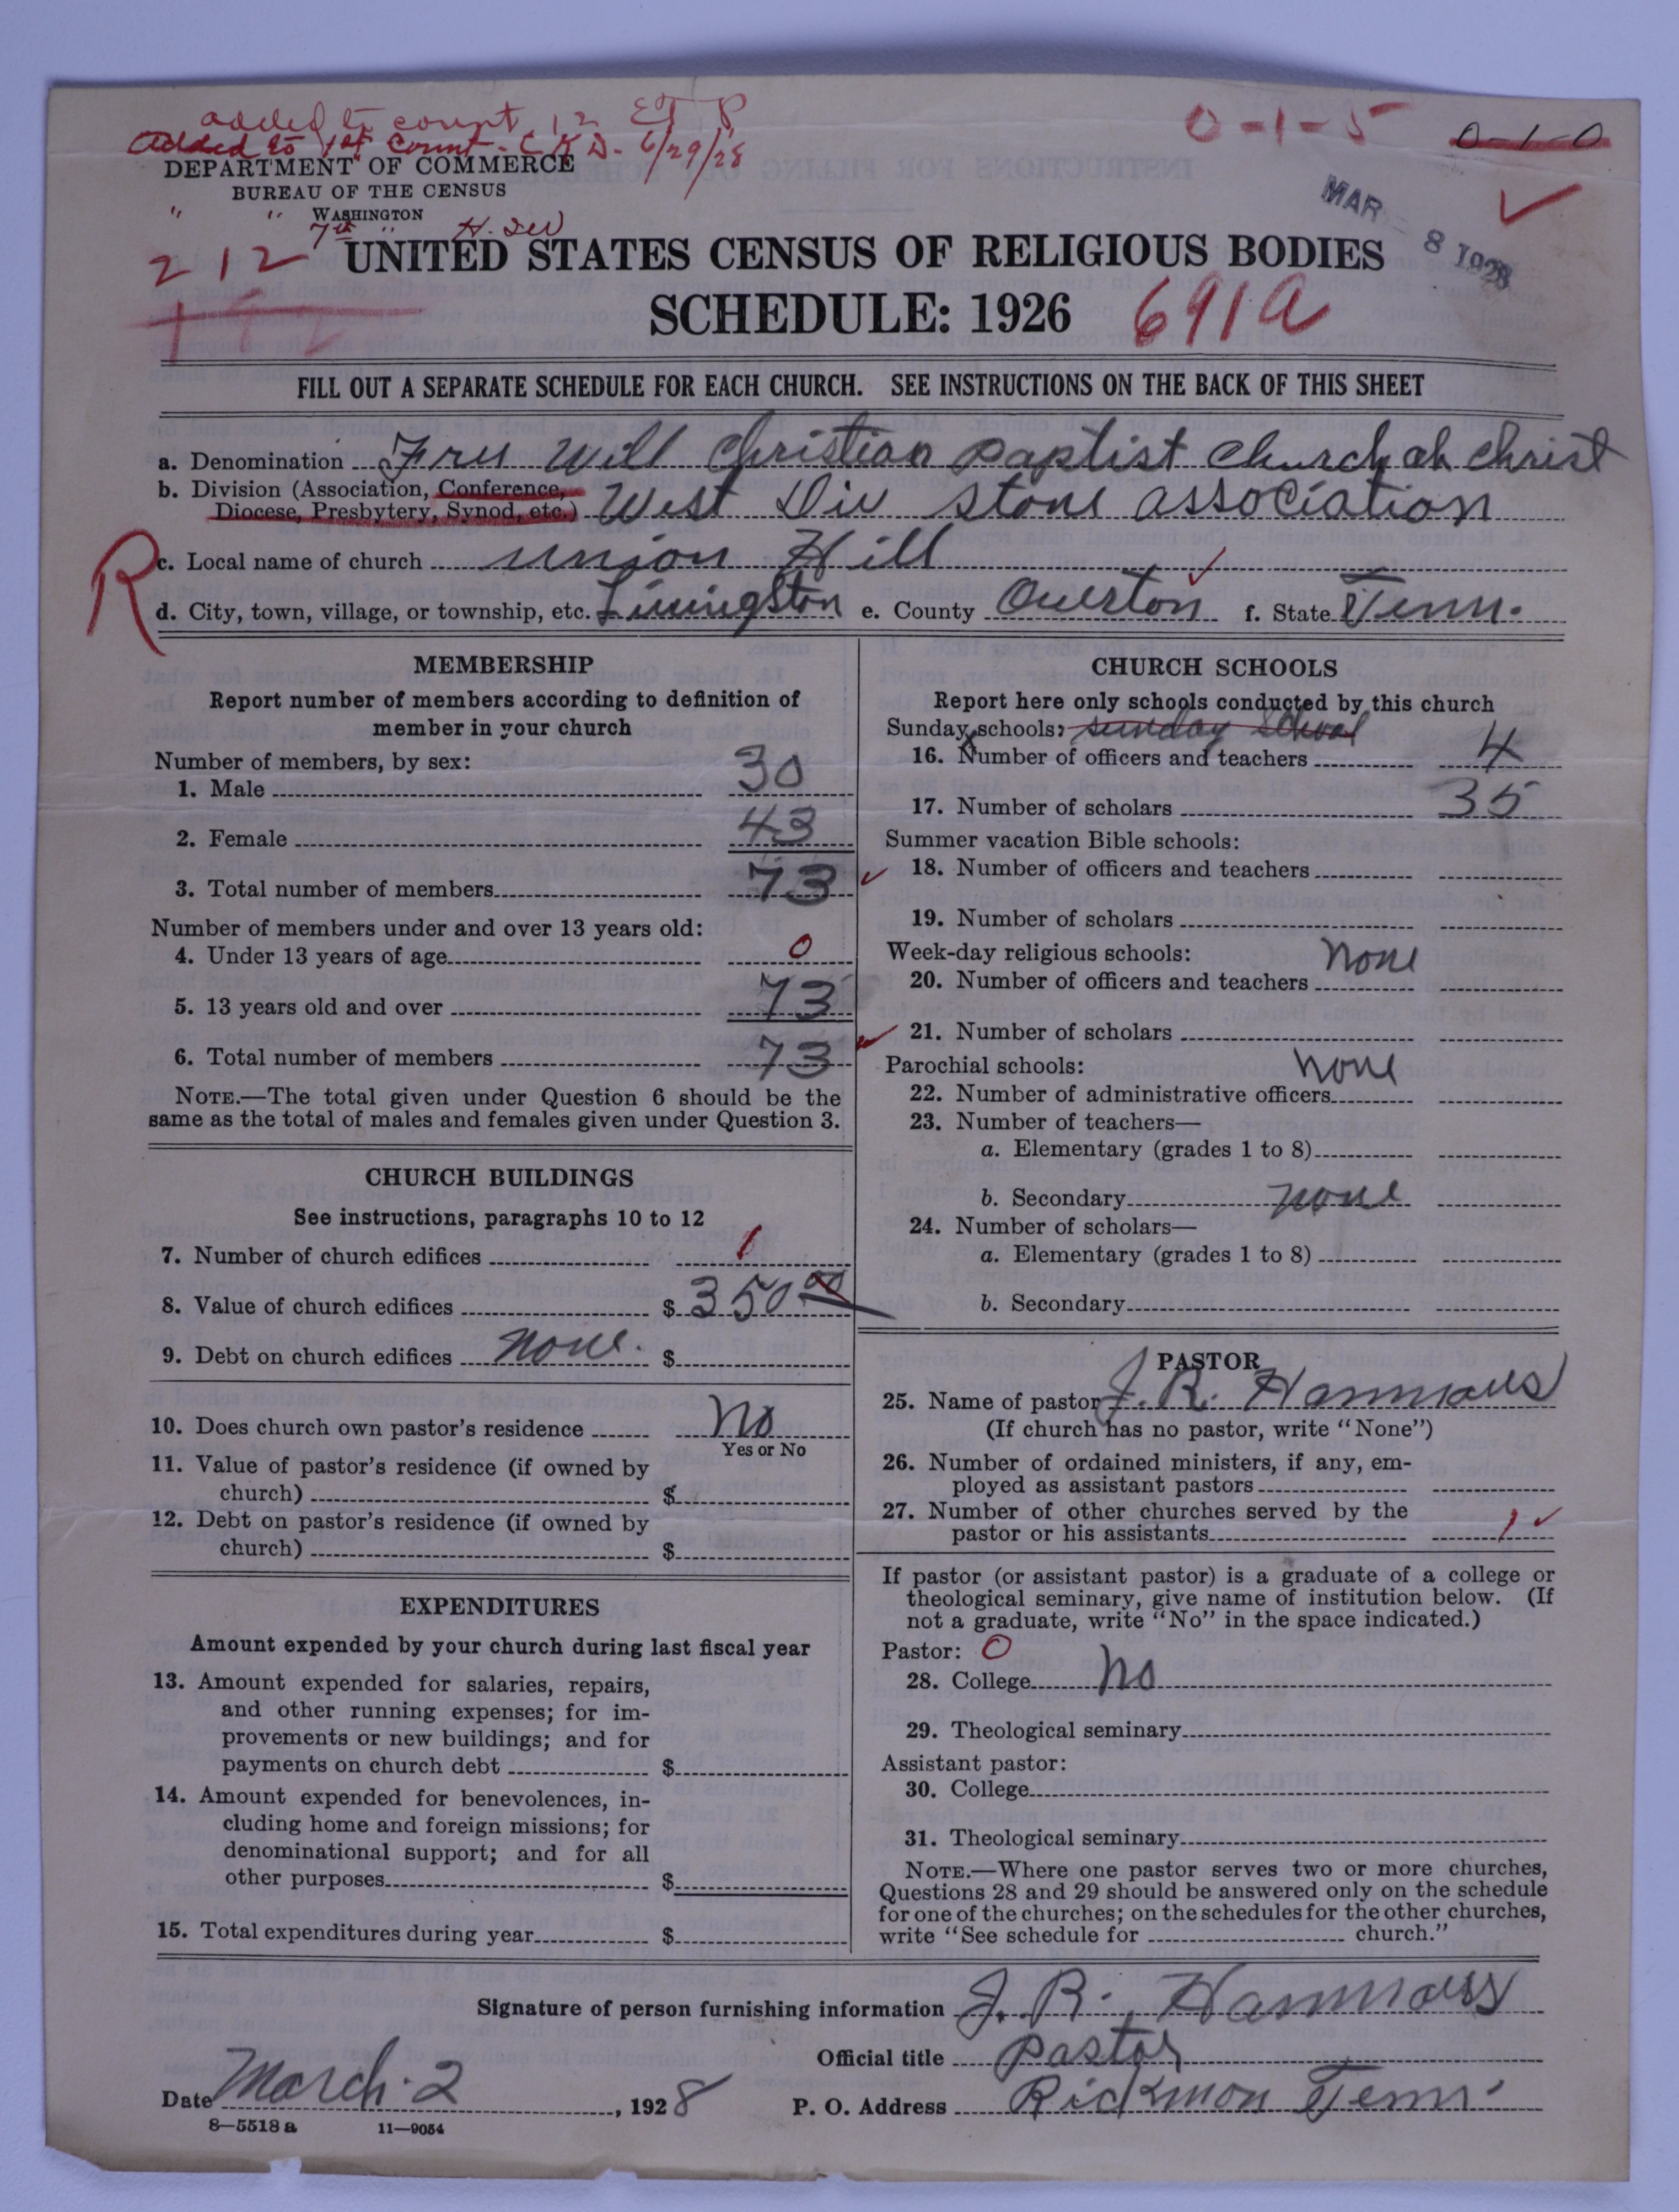 added to count 12 E T P
Added to 1st Count - C K D - 6/29/28
0-1-5
0-1-0
DEPARTMENT OF COMMERCE
BUREAU OF THE CENSUS
WASHINGTON
MAR - 8 1928
7th "
212
UNITED STATES CENSUS OF RELIGIOUS BODIES
SCHEDULE: 1926 691a
FILL OUT A SEPARATE SCHEDULE FOR EACH CHURCH. SEE INSTRUCTIONS ON THE BACK OF THIS SHEET
a. Denomination Free Will Christian Baptist Church of Christ
b. Division (Association, Conference,
Diocese, Presbytery, Synod, etc.) West Div Stone association
R
c. Local name of church Union Hill
d. City, town, village, or township, etc. Livingston e. County Overton f. State Tenn.
MEMBERSHIP
Report number of members according to definition of
member in your church
Number of members, by sex:
1. Male 30
2. Female 43
3. Total number of members 73
Number of members under and over 13 years old:
4. Under 13 years of age 0
5. 13 years old and over 73
6. Total number of members 73
NOTE.—The total given under Question 6 should be the
same as the total of males and females given under Question 3.
CHURCH BUILDINGS
See instructions, paragraphs 10 to 12
7. Number of church edifices 1
8. Value of church edifices $ 350 00
9. Debt on church edifices none. $
10. Does church own pastor's residence No
Yes or No
11. Value of pastor's residence (if owned by
church) $
12. Debt on pastor's residence (if owned by
church) $
EXPENDITURES
Amount expended by your church during last fiscal year
13. Amount expended for salaries, repairs,
and other running expenses; for im-
provements or new buildings; and for
payments on church debt $
14. Amount expended for benevolences, in-
cluding home and foreign missions; for
denominational support; and for all
other purposes $
15. Total expenditures during year $
CHURCH SCHOOLS
Report here only schools conducted by this church
Sunday schools: sunday school
16. Number of officers and teachers 4
17. Number of scholars 35
Summer vacation Bible schools:
18. Number of officers and teachers
19. Number of scholars
Week-day religious schools: none
20. Number of officers and teachers
21. Number of scholars
Parochial schools: none
22. Number of administrative officers
23. Number of teachers—
a. Elementary (grades 1 to 8)
b. Secondary none
24. Number of scholars—
a. Elementary (grades 1 to 8)
b. Secondary
PASTOR
25. Name of pastor J. R. Hammons
(If church has no pastor, write "None")
26. Number of ordained ministers, if any, em-
ployed as assistant pastors
27. Number of other churches served by the
pastor or his assistants 1
If pastor (or assistant pastor) is a graduate of a college or
theological seminary, give name of institution below. (If
not a graduate, write "No" in the space indicated.)
Pastor: 0
28. College No
29. Theological seminary
Assistant pastor:
30. College
31. Theological seminary
NOTE.—Where one pastor serves two or more churches,
Questions 28 and 29 should be answered only on the schedule
for one of the churches; on the schedules for the other churches,
write "See schedule for church."
Signature of person furnishing information J. R. Hammons
Official title Pastor
Date March. 2, 1928 P. O. Address Rickmon Tenn.
8—5518 a 11—9054